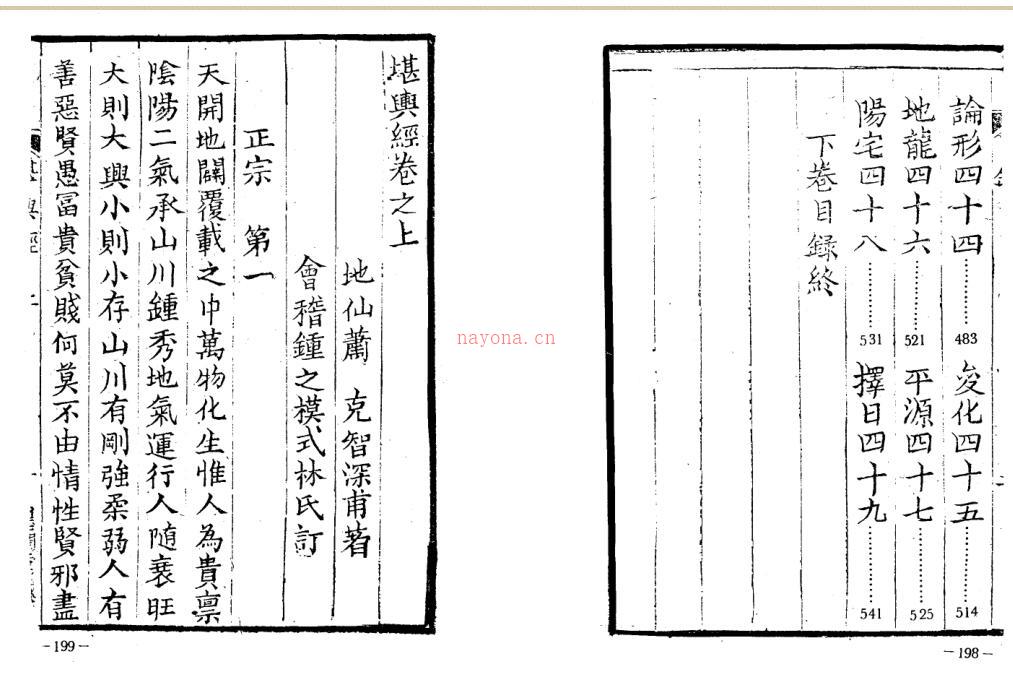 論形四十四………483 变化四十五………514
地龍四十六………521 平源四十七………525
陽宅四十八………531 擇日四十九………541
下卷目錄終
－198－
堪輿經卷之上
地仙蕭 克智深甫著
會稽鍾之模式林氏訂
正宗 第一
天開地闢覆載之中萬物化生惟人為貴稟
陰陽二氣承山川鍾秀地氣運行人隨衰旺
大則大興小則小存山川有剛強柔弱人有
善惡賢愚富貴貧賤何莫不由情性賢邪盡
堪輿經 上
－199－
nayona.cn